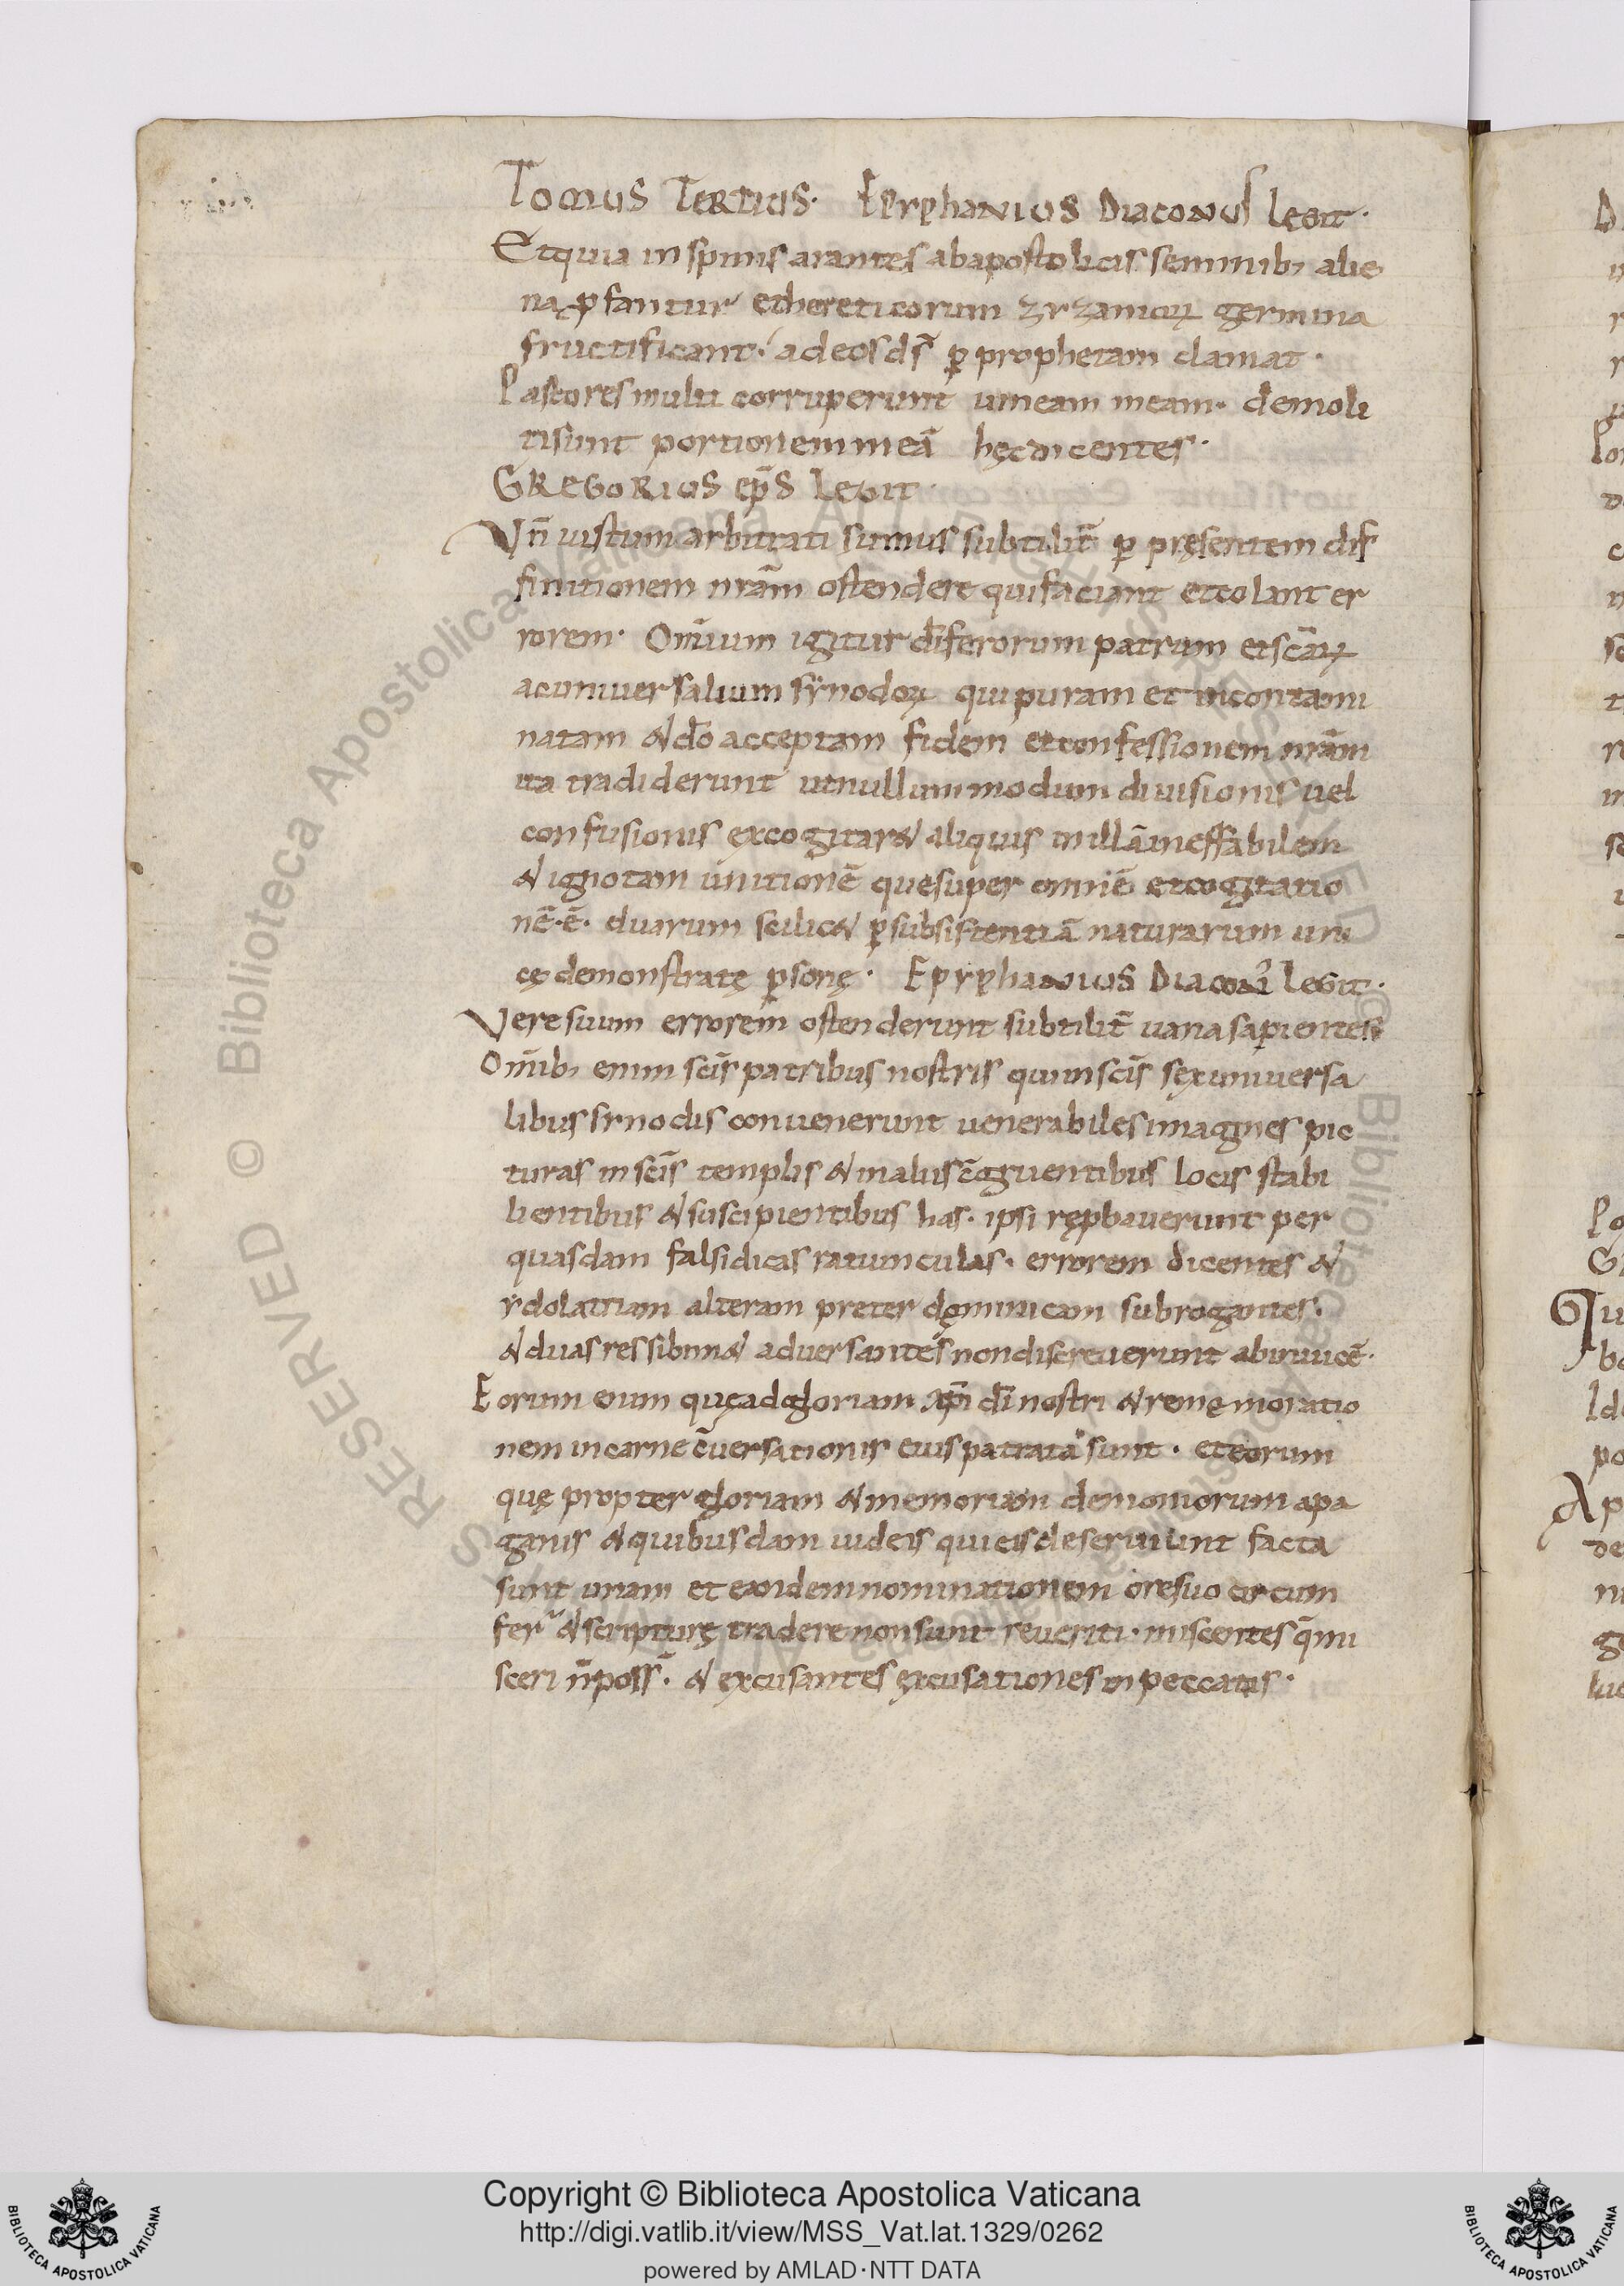 Tomus Tertius. Epyphanius Diaconus Legit.
Et quia in spinis arantes ab apostolicis seminib; alie
na ꝓfantur et hereticorum zyzanioꝝ germina
fructificant. ad eos dſ̄ ꝑ prophetam clamat.
Pastores multi corruperunt uineam meam. demoli
ti sunt portionem meā hęc dicentes.
Gregorius ep̄s Legit.
Vn̄ iustum arbitrati sumus subtilit̄ ꝑ pręsentem dif
finitionem nr̄am ostendere qui faciant et colant er
rorem. Om̄ium igitur d̄iferorum patrum et sc̄aꝝ
ac uniuersalium synodoꝝ qui puram et incontami
natam & do̅ acceptam fidem et confessionem nr̄am
ita tradiderunt ut nullum modum diuisionis uel
confusionis excogitar& aliquis in illā ineffabilem
& ignotam unitionē que super omnē et cogitatio
nē.ē. duarum scilic& ꝑ subsistentiā naturarum uni
cę demonstratę ꝑsonę. Epyphanius Diacon̄ Legit.
Vere suum errorem ostenderunt subtilit̄ uana sapientes
Om̄ib; enim sc̄is patribus nostris qui in sc̄is sex uniuersa
libus synodis conuenerunt uenerabiles imagines pic
turas in sc̄is templis & in aliis c̄gruentibus locis stabi
lientibus & suscipientibus has. ipsi rępbauerunt per
quasdam falsidicas ratiunculas. errorem dicentes &
ydolatriam alteram preter dominicam subrogantes.
& duas res sibim& aduersantes non discreuerunt ab inuicē.
Eorum enim quę ad gloriam xp̄i d̄i nostri & remęmoratio
nem in carne c̄uersationis eius patrata sunt. et eorum
quę propter gloriam & memoriam demoniorum a pa
ganis & quibusdam iudeis qui eis deseruiunt facta
sunt unam et eandem nominationem ore suo circum
fer̄ & scripturę tradere non sunt reueriti. miscentes q̄ mi
sceri n̄ poss̄. & excusantes excusationes in peccatis.
© Biblioteca Apostolica Vaticana ALL RIGHTS RESERVED
Copyright © Biblioteca Apostolica Vaticana
http://digi.vatlib.it/view/MSS_Vat.lat.1329/0262
powered by AMLAD·NTT DATA
BIBLIOTECA APOSTOLICA VATICANA
BIBLIOTECA APOSTOLICA VATICANA